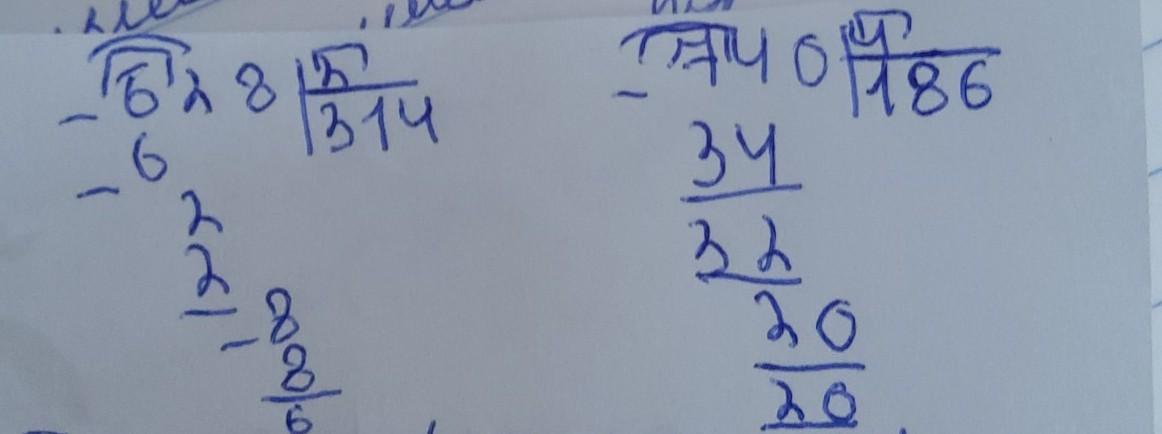 628 | 2
- 6 | 314
- 2
2
- 8
8
6
740 | 4
- | 186
34
32
20
20